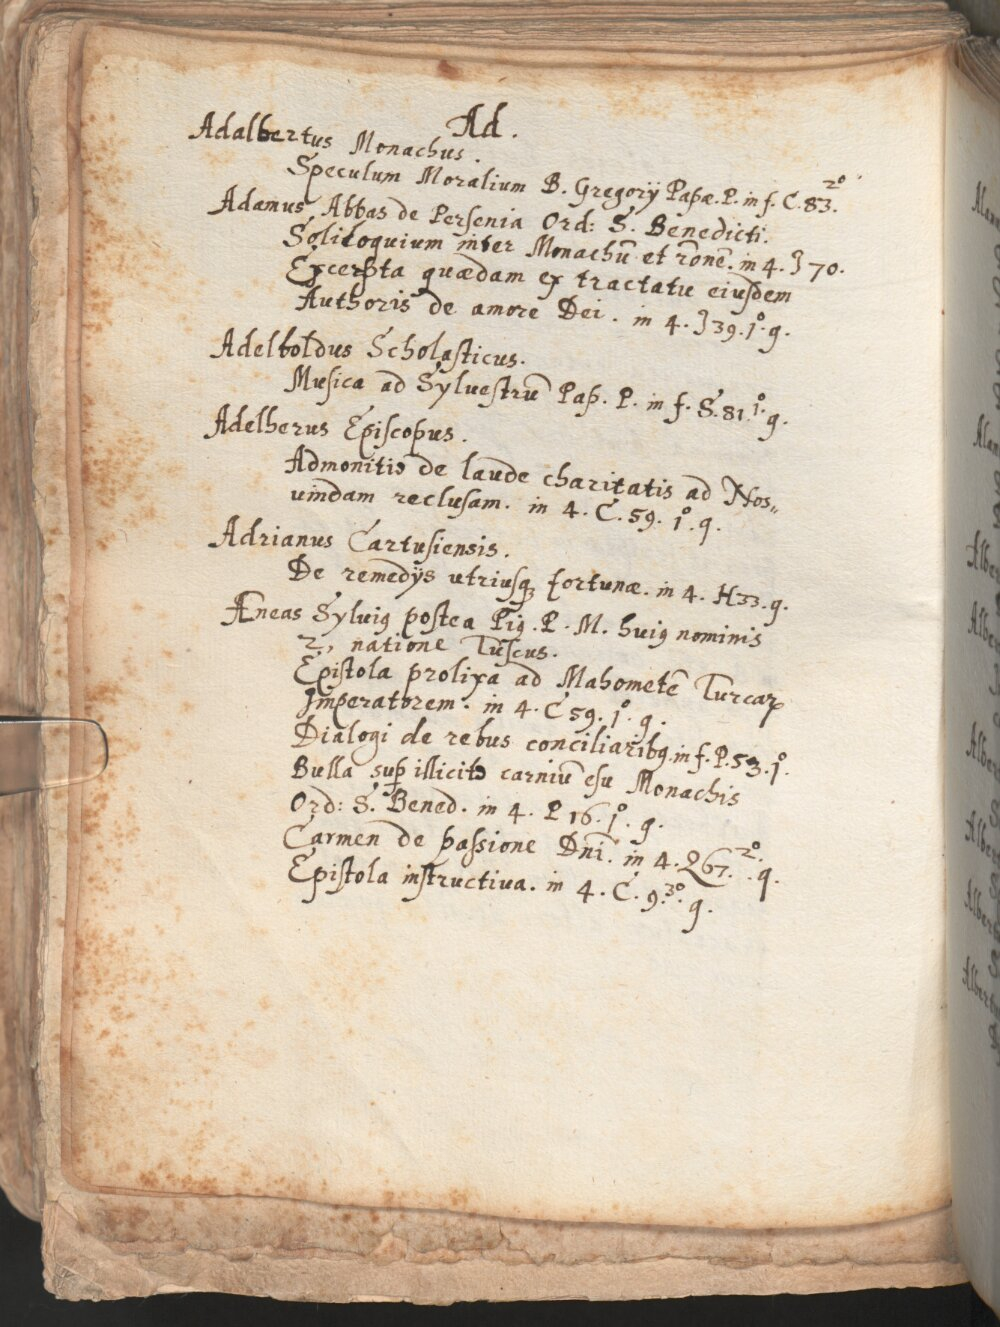 Ad.
Adalbertus Monachus.
Speculum Moralium B. Gregorÿ Papæ. P. in f. C. 83. 2º
Adamus Abbas de Persenia Ord: S. Benedicti.
Soliloquium inter Monachũ et rõnẽ. in 4. J 70.
Excerpta quædam ex tractatu eiusdem
Authoris de amore Dei. in 4. J 39. 1º. q.
Adelboldus Scholasticus.
Musica ad Sylvestrũ Pap. P. in f. S. 81. 1º. q.
Adelherus Episcopus.
Admonitio de laude charitatis ad Nos„
uindam reclusam. in 4. C. 59. 1º. q.
Adrianus Cartusiensis.
De remedÿs utriusqꝫ fortunæ. in 4. H 33. q.
Æneas Sylviꝰ postea Piꝰ. P. M. huiꝰ nominis
2, natione Tuscus.
Epistola prolixa ad Mahometẽ Turcaꝝ
Imperatorem. in 4. C 59. 1º. q.
Dialogi de rebus conciliaribꝰ. in f. P. 53. 1º.
Bulla suꝑ illicito carniũ esu Monachis
Ord: S. Bened. in 4. P 16. 1º. q.
Carmen de passione Dñi. in 4. Q 67. 2º. q.
Epistola instructiua. in 4. C. 9. 3º. q.